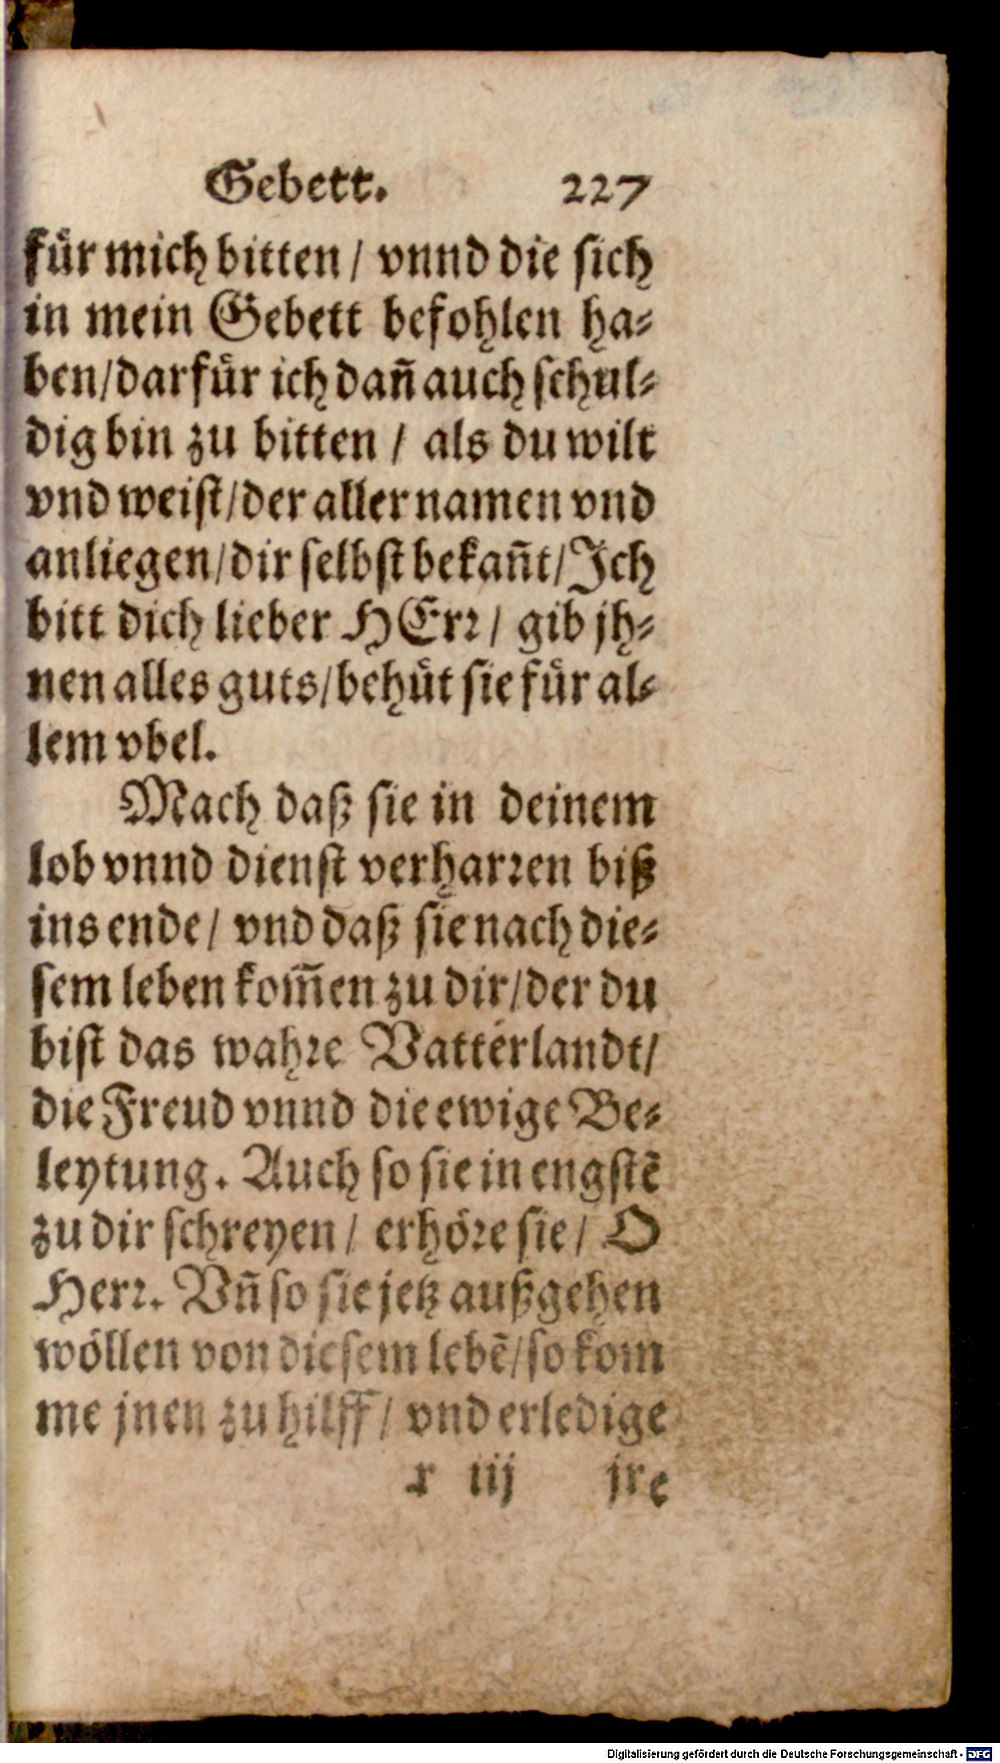 Gebett. 227
fuͤr mich bitten / vnnd die sich
in mein Gebett befohlen ha⸗
ben/darfuͤr ich dañ auch schul⸗
dig bin zu bitten / als du wilt
vnd weist/der aller namen vnd
anliegen/dir selbst bekañt/Ich
bitt dich lieber HErr / gib jh⸗
nen alles guts/behuͤt sie fuͤr al⸗
lem vbel.
Mach daß sie in deinem
lob vnnd dienst verharren biß
ins ende / vnd daß sie nach die⸗
sem leben kom̃en zu dir/der du
bist das wahre Vatterlandt/
die Freud vnnd die ewige Be⸗
leytung. Auch so sie in engstẽ
zu dir schreyen / erhoͤre sie / O
Herr. Vñ so sie jetz außgehen
woͤllen von diesem lebẽ/so kom
me jnen zu hilff / vnd erledige
r iij jre
Digitalisierung gefördert durch die Deutsche Forschungsgemeinschaft - DFG